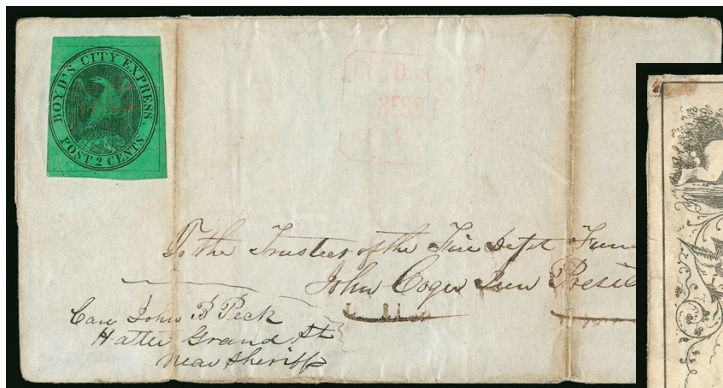 BOYD'S CITY EXPRESS.
POST 2 CENTS.
To the Trustees of the Fire Dept Fun
John Coger Presid
Care John B Peck
Hatter Grand St
near Sheriff